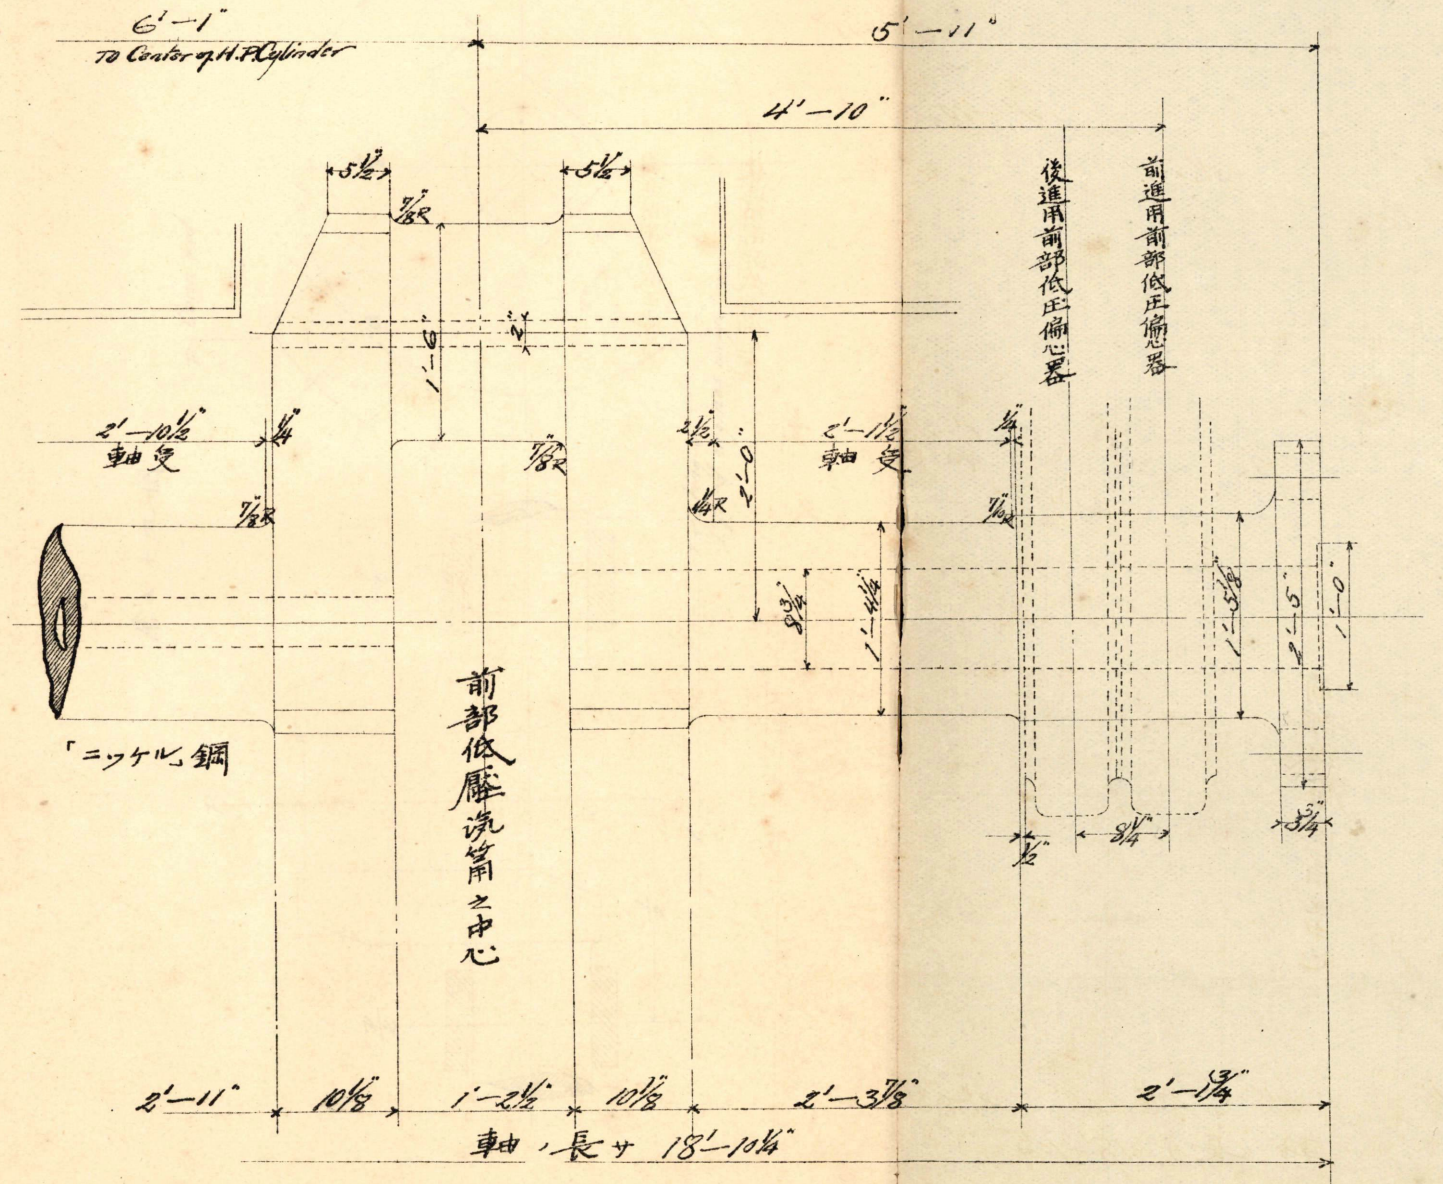 6'—1"
5'—11"
To Center of H.P. Cylinder
4'—10"
5½"
5½"
⅞"R
後進用前部低圧偏心器
前進用前部低圧偏心器
2"
1'—6"
2'—10½"
軸受
¼"
⅞"R
2½"
2'—0"
2'—1½"
軸受
¼"
⅞"R
¼R
⅞"R
8¾"
1'—4¼"
1'—5⅛"
2'—5"
1'—0"
前部低壓汽筩之中心
「ニッケル」鋼
½"
8¼"
3¾"
2'—11"
10⅛"
1'—2½"
10⅛"
2'—3⅞"
2'—1¾"
軸ノ長サ 18'—10¼"